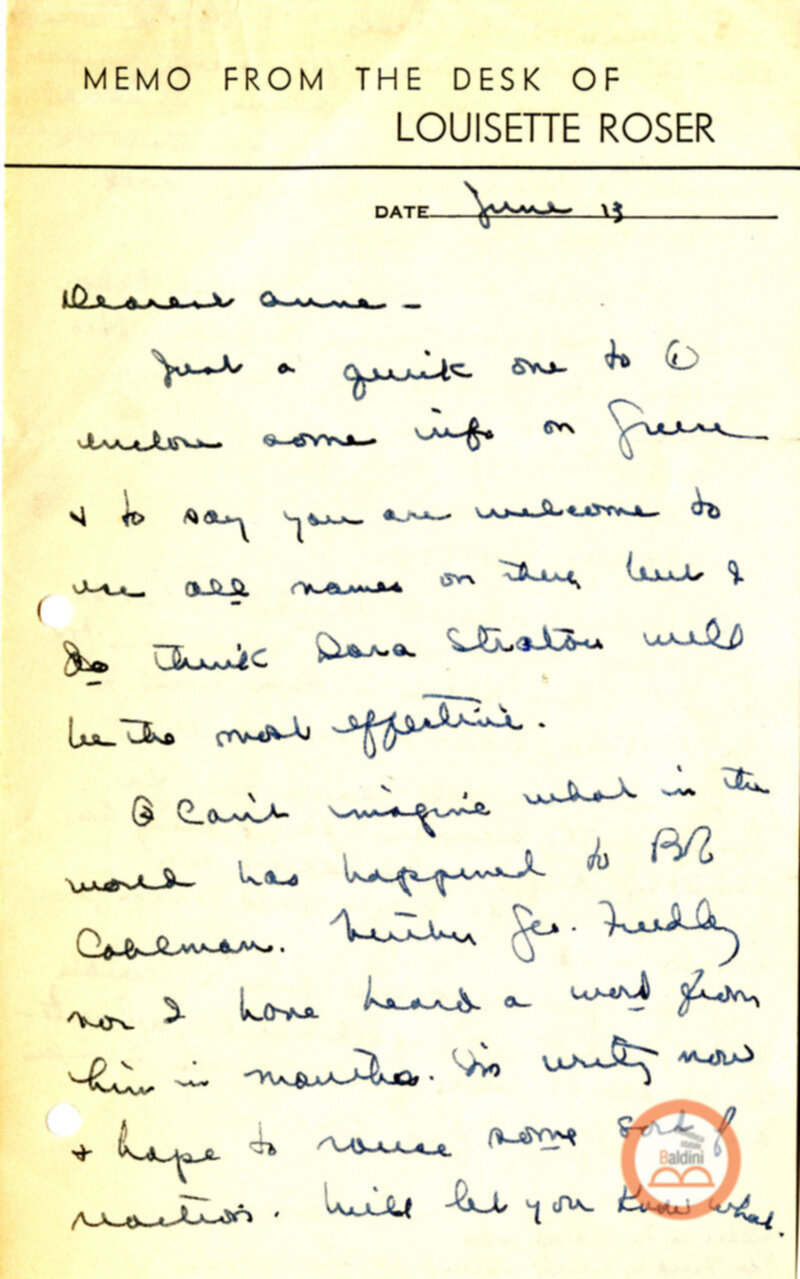 MEMO FROM THE DESK OF
LOUISETTE ROSER
DATE June 13
Dearest Anne –
Just a quick one to ①
enclose some info on Greece
& to say you are welcome to
use all names on there but I
do think Dora Stratou will
be the most effective.
② Can't imagine what in the
world has happened to Bob
Cohlman. Neither Geo. Freedley
nor I have heard a word from
him in months. I'm writing now
& hope to rouse some sort of
reaction. Will let you know what.
Baldini